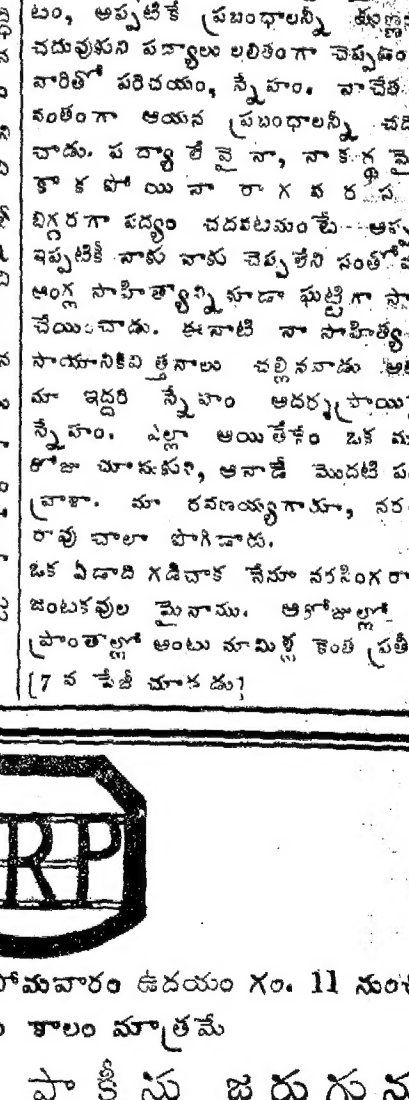 టం, అప్పటికే ప్రబంధాలన్నీ
చదువుకుని పద్యాలు లలితంగా చెప్పడం
వారితో పరిచయం, స్నేహం. నాచేత
వంతంగా ఆయన ప్రబంధాలన్నీ
చాడు. పద్యాలేవైనా, నాకగ్గ
కాకపోయినా రాగవరస
బిగ్గరగా పద్యం చదవటమంటే
ఇప్పటికీ నాకు నాకు చెప్పలేని
ఆంగ్ల సాహిత్యాన్ని కూడా ఘట్టిగా
చేయించాడు. ఈనాటి నా సాహిత్య
సాయానికివి త్తనాలు చల్లినవాడు
మా ఇద్దరి స్నేహం ఆదర్శప్రాయ
స్నేహం. ఎల్లా అయితేనేం ఒక
రోజు చూసుకుని, ఆనాడే మొదటి
వ్రాశా. మా రవణయ్యగారూ, నర
రావు చాలా పొగిడారు.
ఒక ఏడాది గడిచాక నేనూ నరసింగరా
జంటకవుల మైనాము. ఆరోజుల్లో
ప్రాంతాల్లో అంటు మామిళ్ల కెంత ప్రతీ
[7 వ పేజీ చూడడు]
RP
సోమవారం ఉదయం గం. 11 నుంచి
కాలం మాత్రమే
పాకీను జరుగును